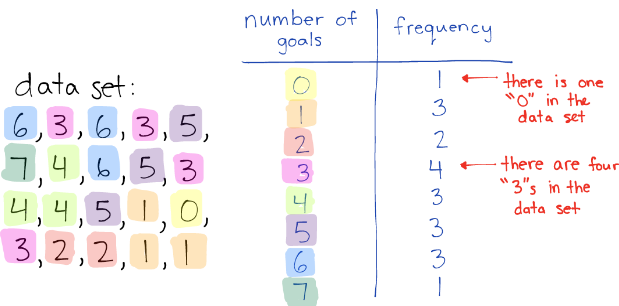 data set:
6, 3, 6, 3, 5,
7, 4, 6, 5, 3
4, 4, 5, 1, 0,
3, 2, 2, 1, 1
number of goals | frequency
0 | 1
1 | 3
2 | 2
3 | 4
4 | 3
5 | 3
6 | 3
7 | 1
there is one
"0" in the
data set
there are four
"3"s in the
data set